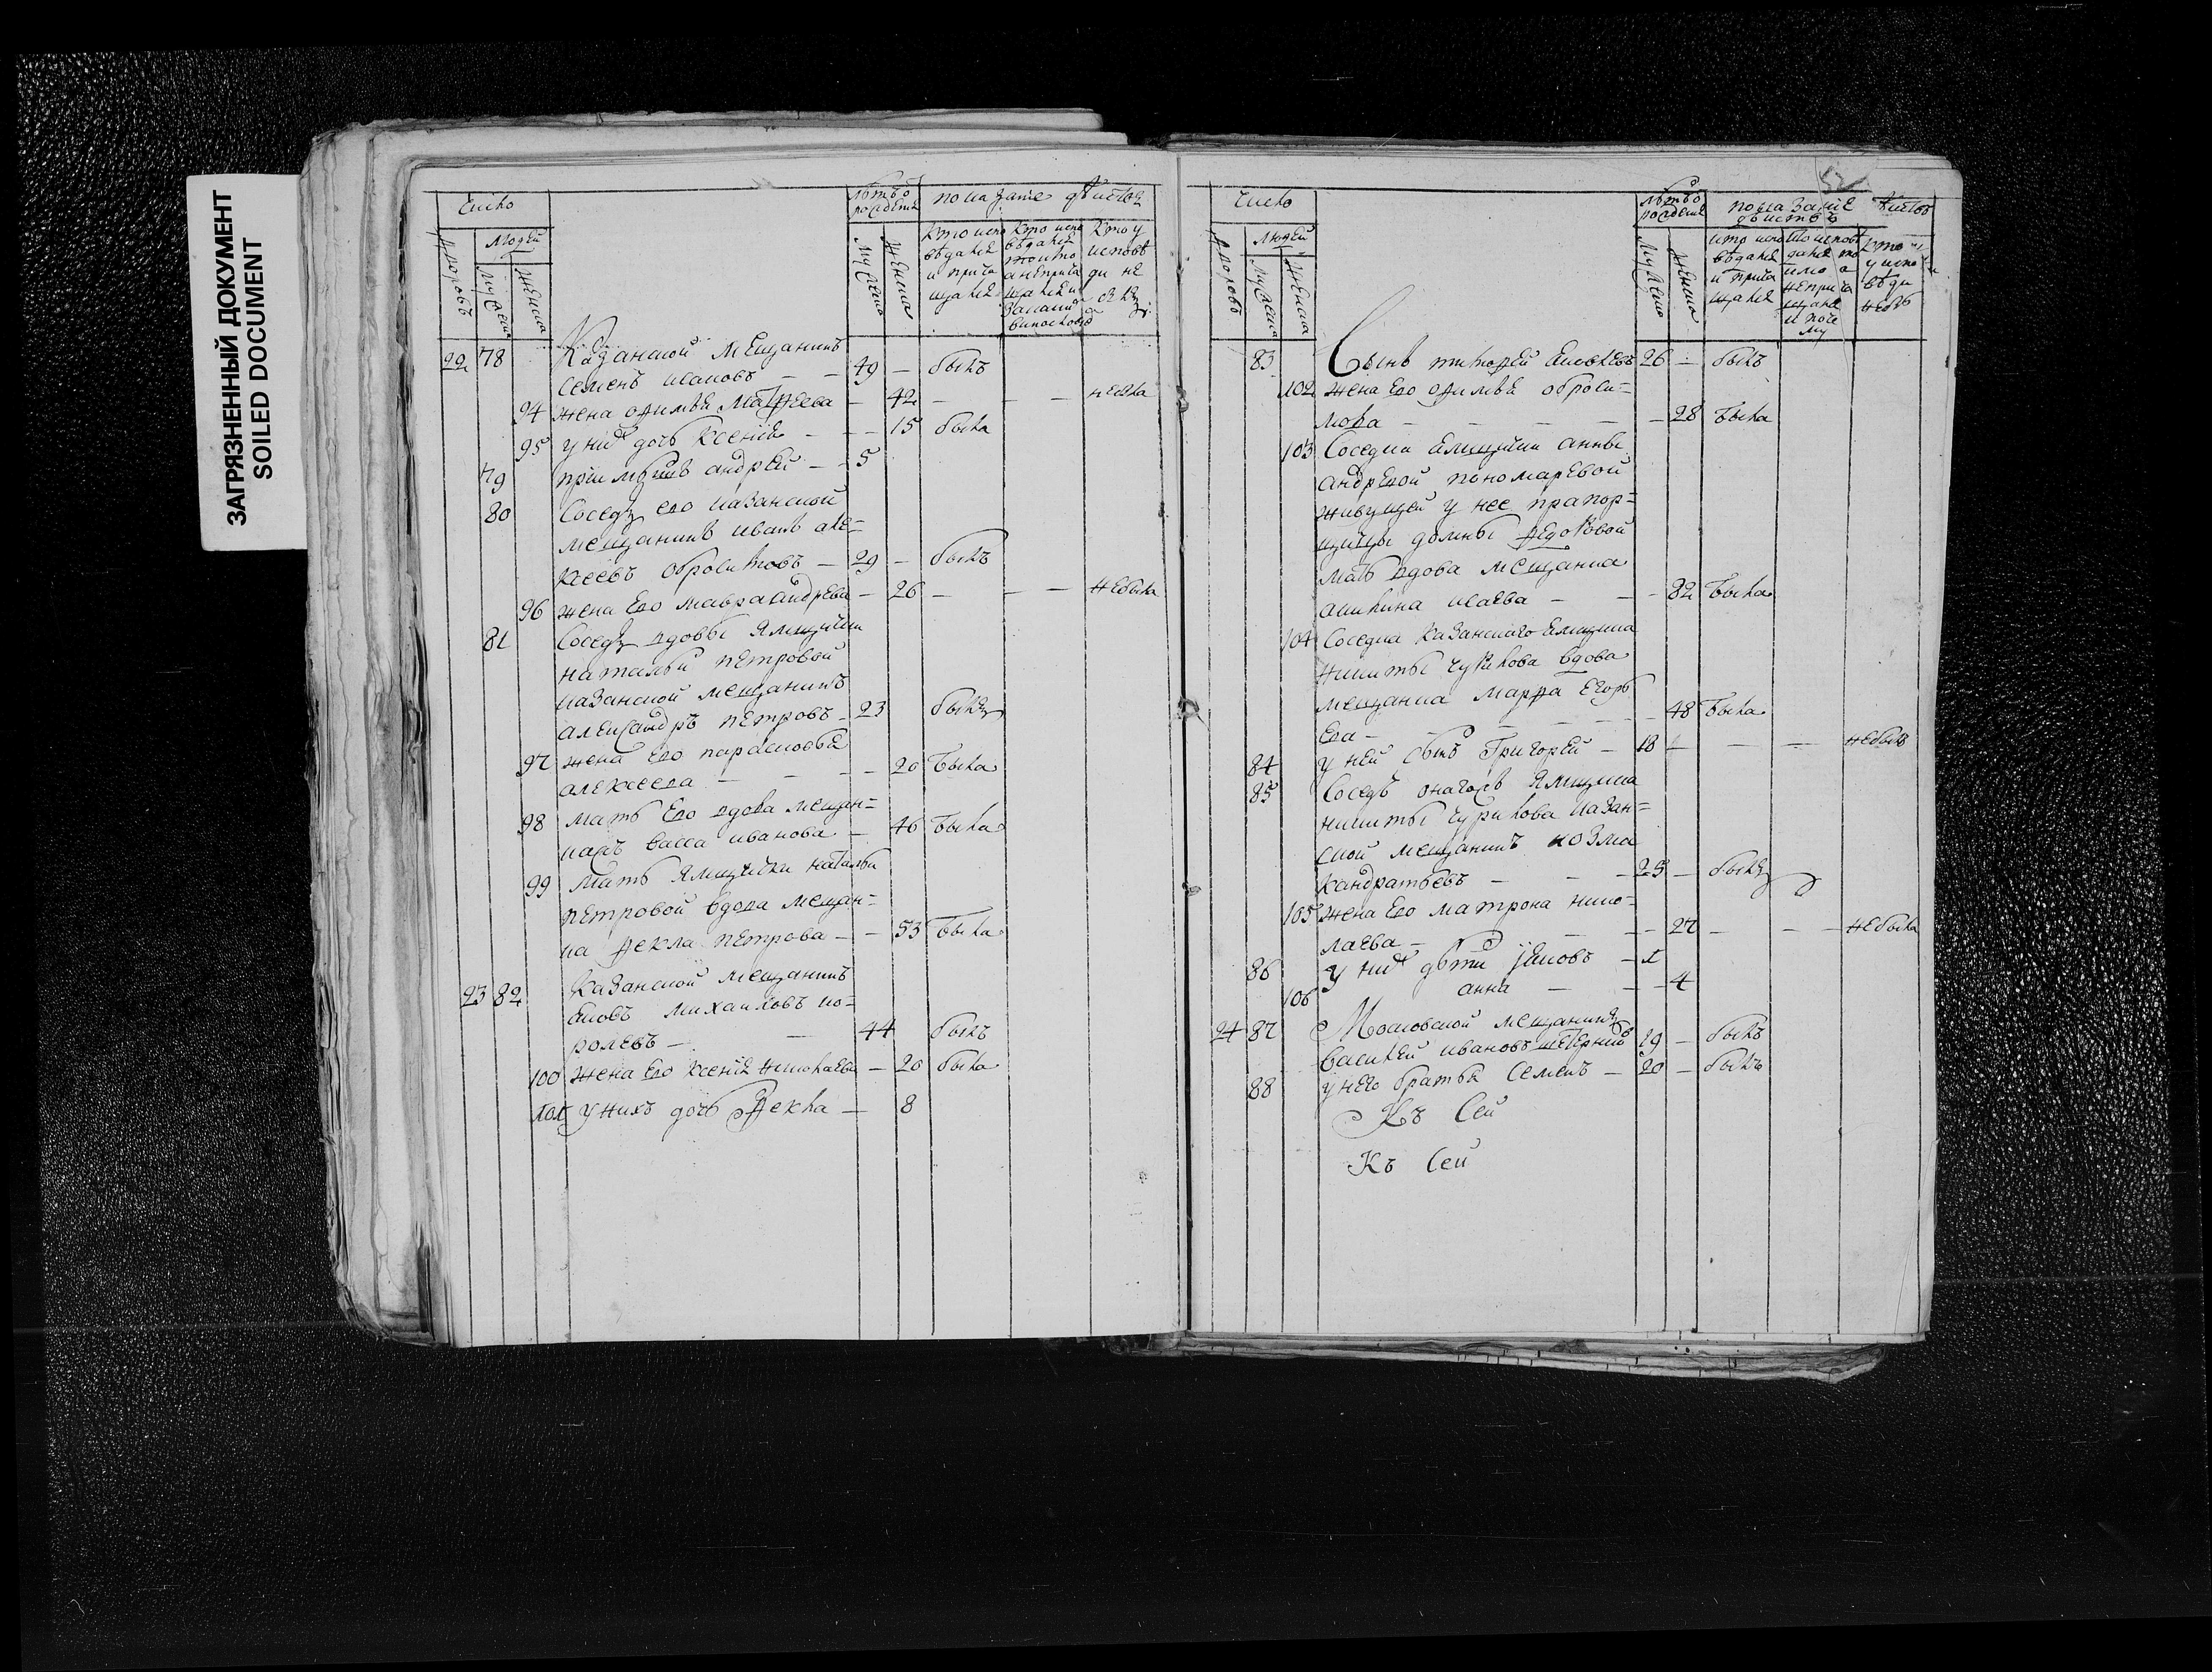 ЗАГРЯЗНЕННЫЙ ДОКУМЕНТ
SOILED DOCUMENT
Число
Людей
Дворовъ
Мужеска
Женска
Лѣтъ о рожденiя
Мужеска
Женска
показанiе дѣйствъ
Кто исповѣдался и причащался
Кто исповѣдался токмо а не причащался и за какимъ винословiем
Кто у исповѣди не
22 78 Казанской мещанинъ
Семенъ исаковъ — — 49 — былъ
94 жена ѳимья Матѳеева — 42 — — — небыла
95 у них дочь Ксенiя — — — 15 была
79 прiимышъ андрей — — 5
80 Соседъ ево казанской
мещанинъ иванъ але=
ксеевъ обросимовъ — 29 — былъ
96 жена Ево мавра андрева — 26 — — — Небыла
81 Соседъ вдовы Ямщички
натальи петровой
казанской мещанинъ
александръ петровъ — 23 былъ
97 жена Ево парасковья
алексеева — — — — 20 Была
98 мать Ево вдова мещан=
каъ васса иванова — 46 Была
99 Мать Ямщички натальи
петровой вдова мещан=
ка Ѳекла петрова — — 53 Была
23 82 Казанской мещанинъ
Яковъ михаиловъ ко=
ролевъ — — 44 былъ
100 жена Ево ксенiя николаева — 20 была
101 у нихъ дочь Ѳекла — 8
52
Число
Людей
Дворовъ
Мужеска
Женска
Лѣтъ о рожденiя
Мужеска
Женска
показанiе дѣйствъ
кто исповѣдался и причащался
Кто исповѣдался токмо а непричащался и почему
Кто у исповѣди небылъ
83 Сынъ тимоѳей Яковлевъ 26 — былъ
102 жена Ево ѳимья оброси=
мова — — — — — 28 Была
103 Соседки Ямщички анны
андревой пономаревой
живущей у нее прапор=
щицы домны Ѳедоровой
мать вдова мещанка
акилина исаева — — — 82 Была
104 Соседка казанскаго Ямщика
никиты чурилова вдова
мещанка марѳа Егорь
ева — — — — — 48 Была
84 у ней сынъ Григорей — 18 — — — небылъ
85 Соседъ онагожъ Ямщика
никиты чурилова казан=
ской мещанинъ козма
кандратьевъ — — — 25 — былъ
105 жена Ево матрона нико=
лаева — — — — 27 — — — Небыла
86 у них дѣти iяковъ — 1
106 анна — — — 4
24 87 Московской мещанинъ
василей ивановъ 29 — былъ
88 у него братья Семенъ — 20 — былъ
Къ Сей
Къ Сей